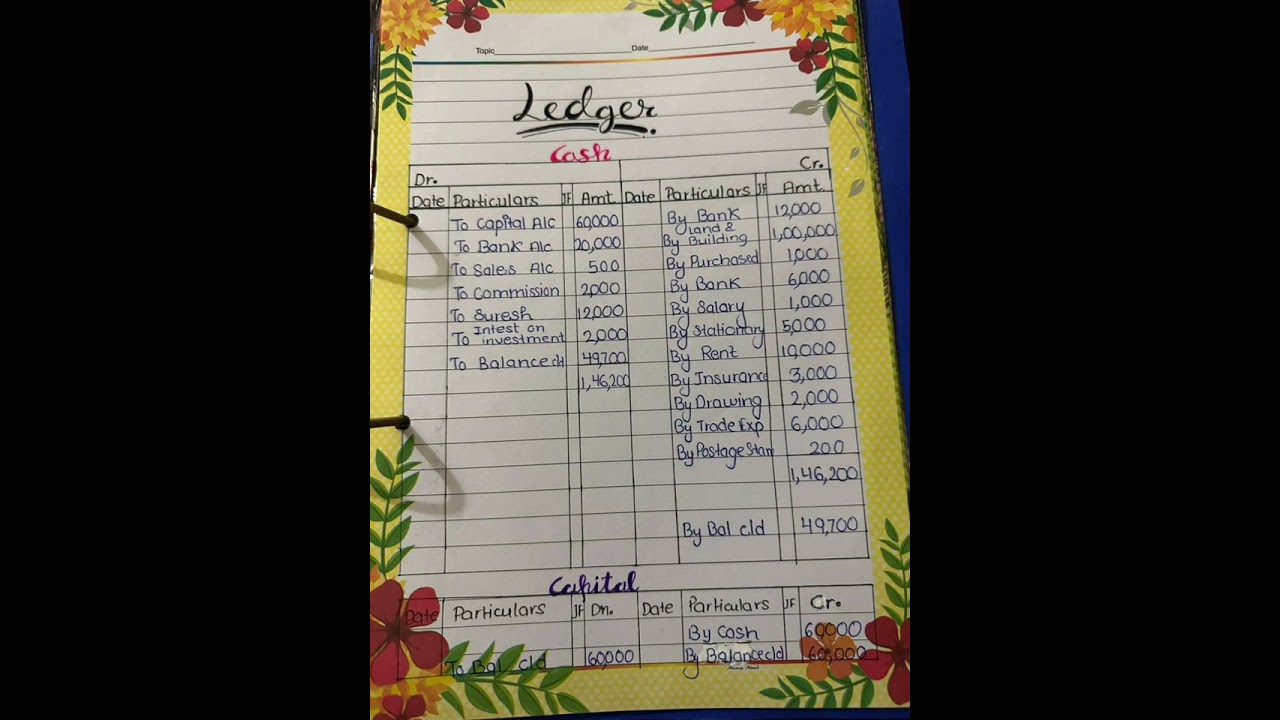 Topic Date
Ledger
Cash
Dr. Cr.
Date Particulars JF Amt Date Particulars JF Amt
To Capital A/c 60,000 By Bank 12,000
To Bank A/c 20,000 By Land & Building 1,00,000
To Sales A/c 500 By Purchased 1,000
To Commission 2,000 By Bank 6,000
To Suresh 12,000 By Salary 1,000
To Intest on investment 2,000 By Stationary 5,000
To Balance c/d 49,700 By Rent 10,000
1,46,200 By Insuranc 3,000
By Drawing 2,000
By Trade Exp 6,000
By Postage Stam 200
1,46,200
By Bal c/d 49,700
Capital
Date Particulars JF Dr. Date Particulars JF Cr.
By Cash 60,000
To Bal c/d 60,000 By Balance c/d 60,000